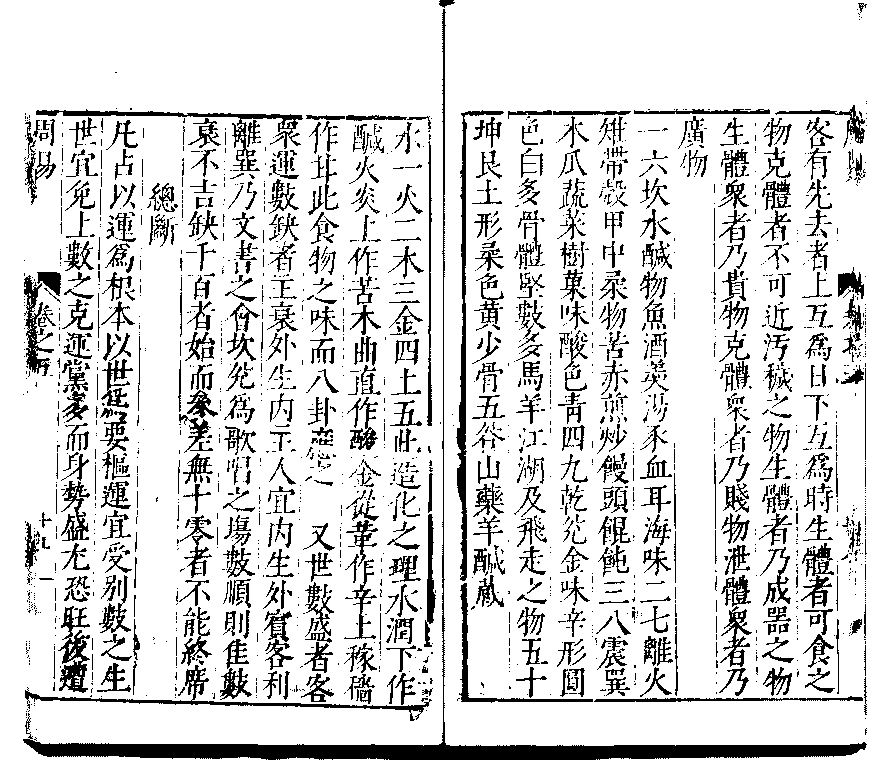 客有先去者上互爲日下互爲時生體者可食之
物克體者不可近汚穢之物生體者乃成器之物
生體衆者乃貴物克體衆者乃賤物泄體衆者乃
廣物
一六坎水鹹物魚酒羮湯豕血耳海味二七離火
雉帶殼甲中柔物苦赤煎炒饅頭餛飩三八震巽
木瓜蔬菜樹菓味酸色靑四九乾兊金味辛形圓
色白多骨體堅數多馬羊江湖及飛走之物五十
坤艮土形柔色黄少骨五谷山藥羊鹹
水一火二木三金四土五此造化之理水潤下作
鹹火炎上作苦木曲直作酸金從革作辛土稼穡
作甘此食物之味而八卦 之 又世數盛者客
衆運數缺者主衰外生内主人宜内生外賓客利
離巽乃文書之會坎兊爲歌唱之塲數順則佳數
衰不吉缺千百者始而參差無十零者不能終席
總斷
凡占以運爲根本以世爲要樞運宜受别數之生
世宜免上數之克運黨多而身勢盛尤恐旺後遭
周易
卷之
十九